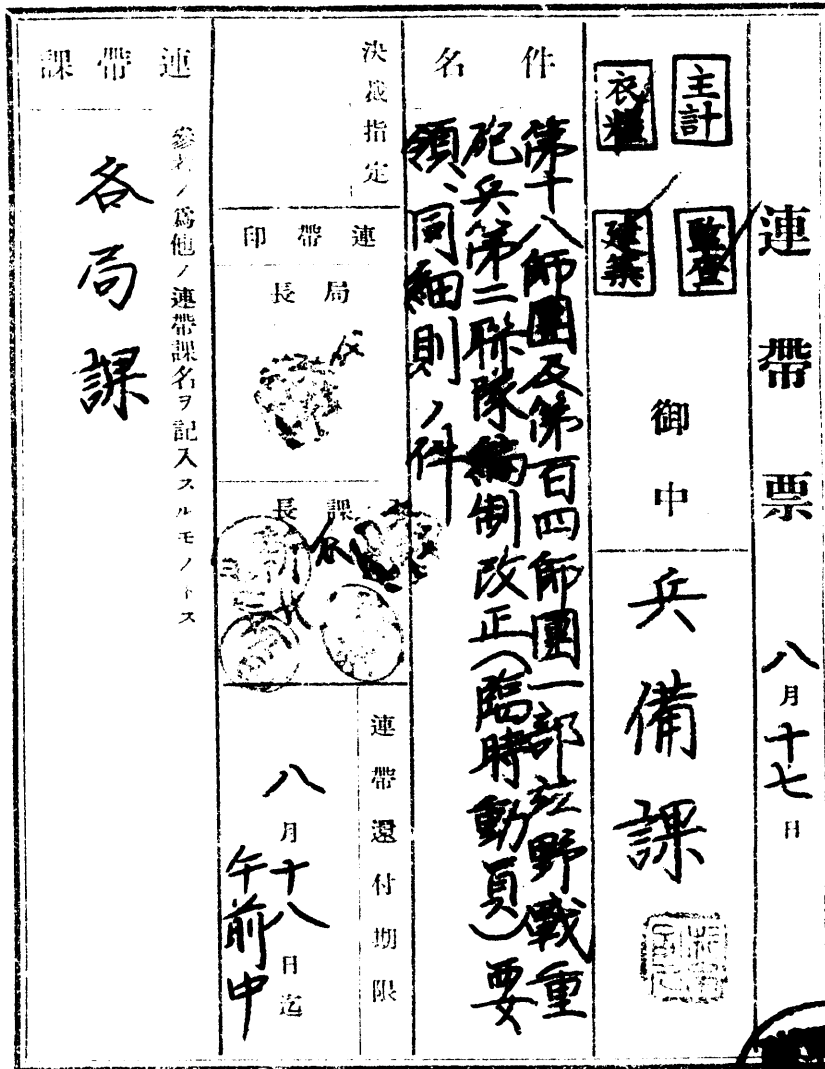 連帶票
八月十七日
主計
監査
衣糧
建築
御中
兵備課
件名
第十八師團及第百四師團一部竝野戰重
砲兵第二聯隊編制改正(臨時動員)要
領、同細則ノ件
決裁指定
連帶印
局長
課長
連帶還付期限
八月十八日迄
午前中
連帶課
參考ノ爲他ノ連帶課名ヲ記入スルモノトス
各局課